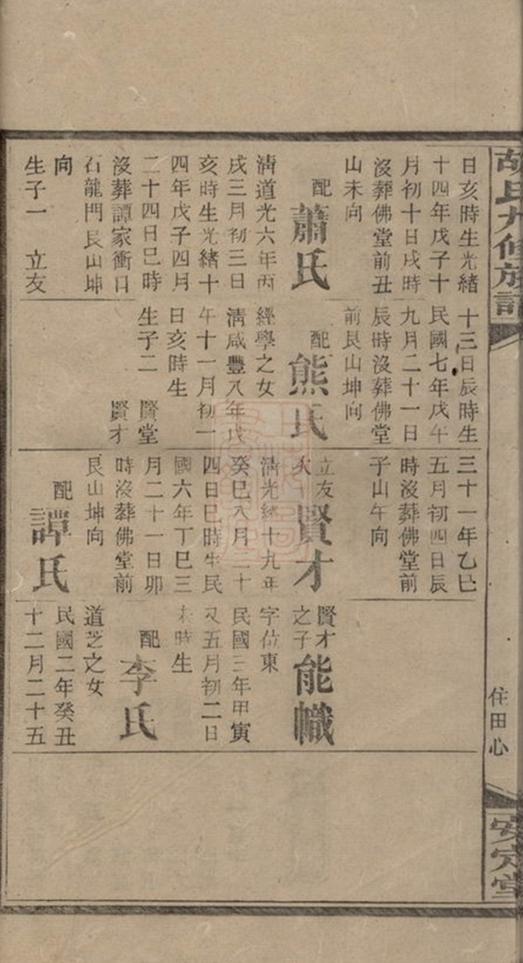 胡氏九修族譜
住田心
安定堂
日亥時生光緒
十四年戊子十
月初十日戌時
沒葬佛堂前丑
山未向
配 蕭氏
清道光六年丙
戌三月初三日
亥時生光緒十
四年戊子四月
二十四日巳時
沒葬譚家衝口
石龍門艮山坤
向
生子一 立友
十三日辰時生
民國七年戊午
九月二十一日
辰時沒葬佛堂
前艮山坤向
配 熊氏
經學之女
清咸豐八年戊
午十一月初一
日亥時生
生子二 賢堂
賢才
三十一年乙巳
五月初四日辰
時沒葬佛堂前
子山午向
立友次 賢才
清光緒十九年
癸巳八月二十
四日巳時生民
國六年丁巳三
月二十一日卯
時沒葬佛堂前
艮山坤向
配 譚氏
賢才之子 能幟
字位東
民國三年甲寅
又五月初二日
未時生
配 李氏
道芝之女
民國二年癸丑
十二月二十五